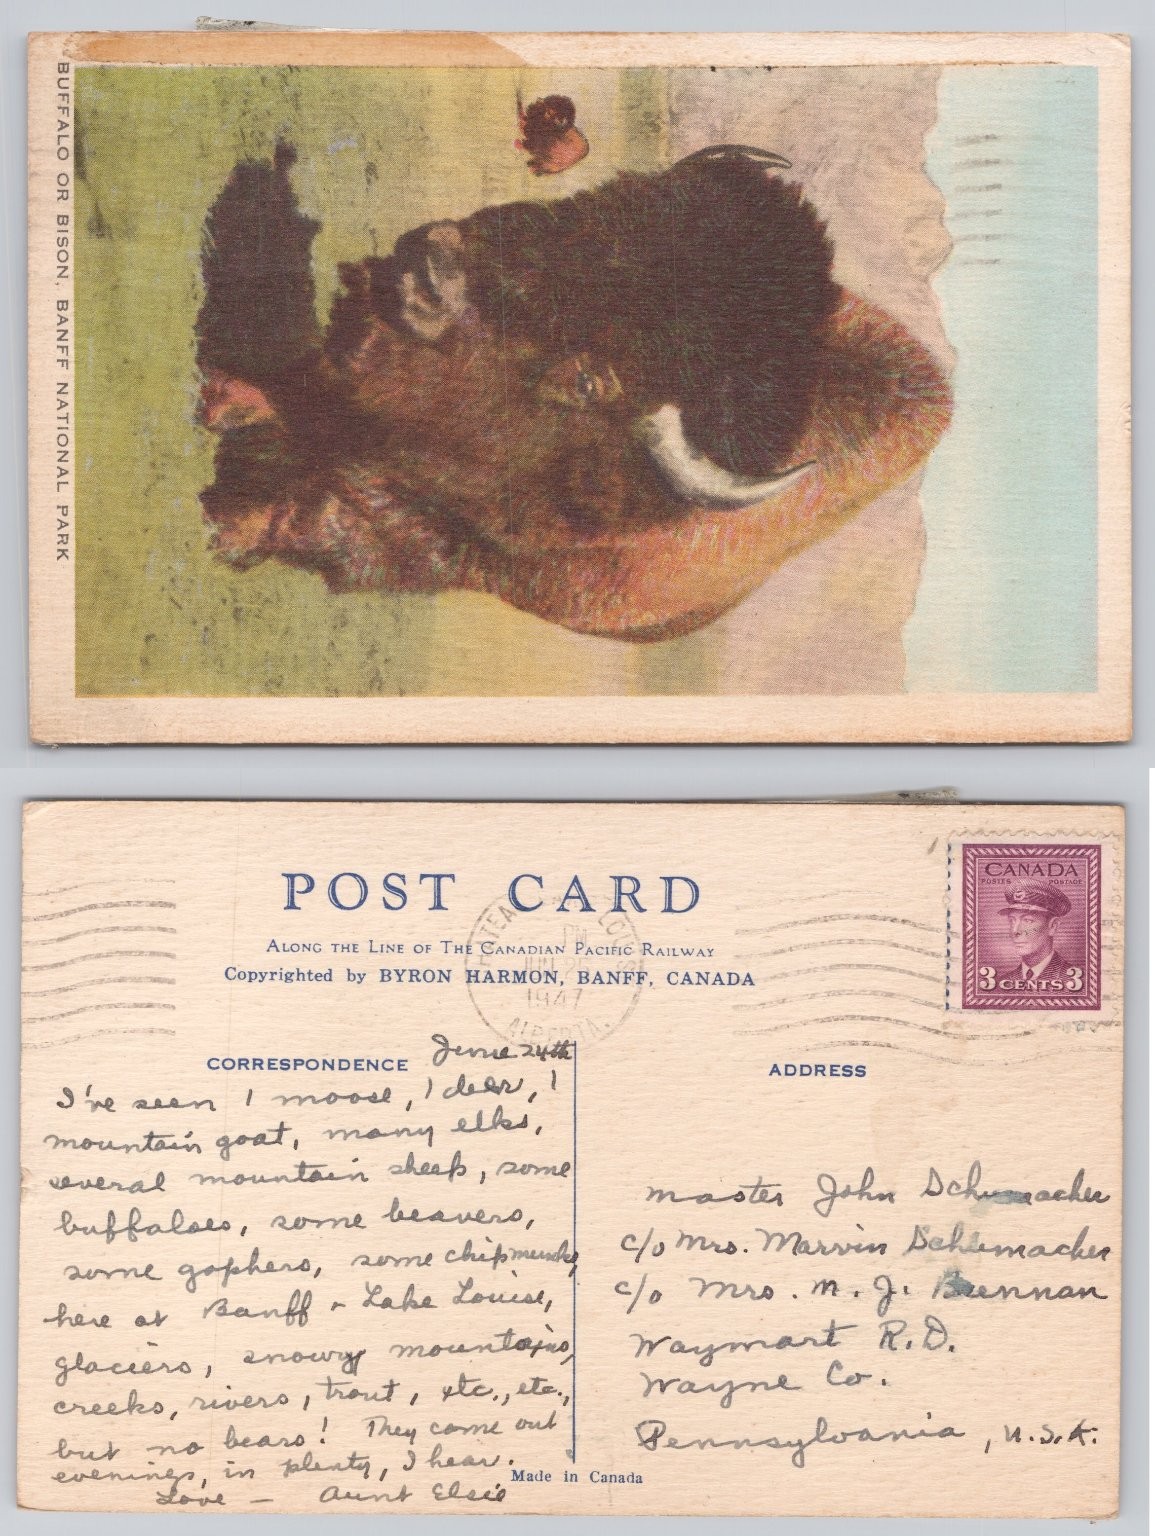 BUFFALO OR BISON, BANFF NATIONAL PARK
POST CARD
ALONG THE LINE OF THE CANADIAN PACIFIC RAILWAY
Copyrighted by BYRON HARMON, BANFF, CANADA
CANADA
POSTES POSTAGE
3 CENTS 3
PM
JUN
1947
ALBERTA.
CORRESPONDENCE
June 24th
I've seen 1 moose, 1 deer, 1
mountain goat, many elks,
several mountain sheep, some
buffaloes, some beavers,
some gophers, some chipmunks,
here at Banff + Lake Louise,
glaciers, snowy mountains,
creeks, rivers, trout, etc., etc.,
but no bears! They come out
evenings, in plenty, I hear.
Love — Aunt Elsie
ADDRESS
Master John Schumacher
c/o Mrs. Marvin Schumacher
c/o Mrs. M. J. Brennan
Waymart R.D.
Wayne Co.
Pennsylvania, U.S.A.
Made in Canada